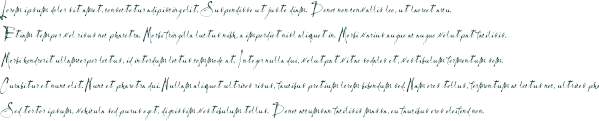 Lorem ipsum dolor sit amet, consectetur adipiscing elit. Suspendisse ut justo diam. Donec non convallis leo, ut laoreet arcu.
Etiam tempor vel risus nec pharetra. Morbi fringilla lectus nibh, a imperdiet nisl aliquet in. Morbi varius augue ac augue volutpat facilisis.
Morbi hendrerit ullamcorper lectus, id interdum lectus commodo at. Integer nulla dui, volutpat vitae sodales et, vestibulum fermentum sem.
Curabitur et nunc elit. Nunc et pharetra dui. Nullam aliquet ultrices risus, faucibus pretium lorem bibendum sed. Nam eros tellus, fermentum ac lectus nec, ultrices
Sed tortor ipsum, vehicula sed purus eget, dignissim vestibulum tellus. Donec accumsan facilisis massa, eu faucibus eros eleifend non.